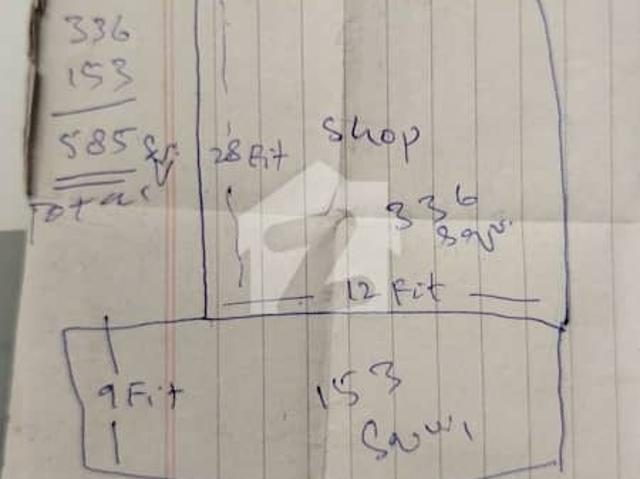 336
153
585 Sq
Total
28 Fit
Shop
336
Sqr
12 Fit
9 Fit
153